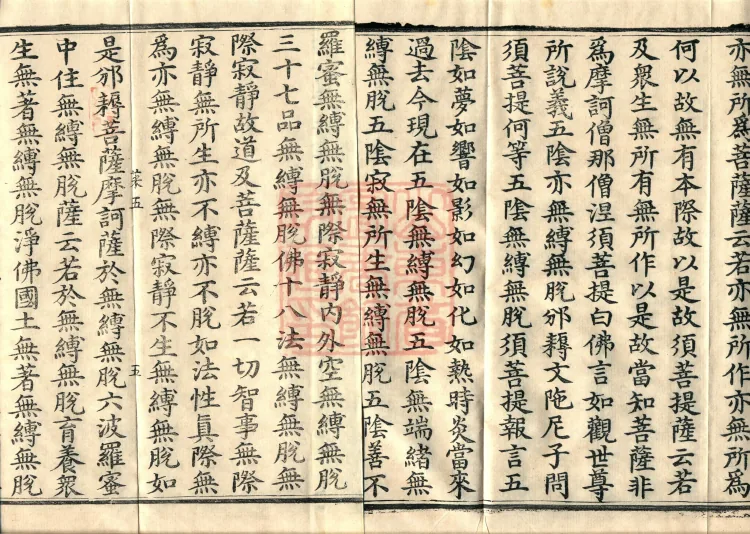 亦無所爲菩薩薩云若亦無所作亦無所爲
何以故無有本際故以是故須菩提薩云若
及衆生無所有無所作以是故當知菩薩非
爲摩訶僧那僧涅須菩提白佛言如觀世尊
所說義五陰亦無縛無脫邠耨文陁尼子問
須菩提何等五陰無縛無脫須菩提報言五
陰如夢如響如影如幻如化如熱時炎當來
過去今現在五陰無縛無脫五陰無端緒無
縛無脫五陰寂無所生無縛無脫五陰善不
羅蜜無縛無脫無際寂靜內外空無縛無脫
三十七品無縛無脫佛十八法無縛無脫無
際寂靜故道及菩薩薩云若一切智事無際
寂靜無所生亦不縛亦不脫如法性眞際無
爲亦無縛無脫無際寂靜不生無縛無脫如
五
是邠耨菩薩摩訶薩於無縛無脫六波羅蜜
中住無縛無脫薩云若於無縛無脫育養衆
生無著無縛無脫淨佛國土無著無縛無脫